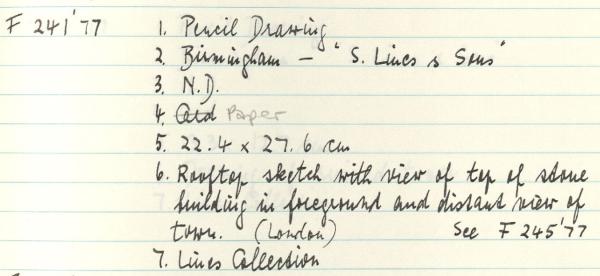 F 241'77 1. Pencil Drawing
2. Birmingham – "S. Lines & Sons"
3. N.D.
4. Card Paper
5. 22.4 x 27.6 cm
6. Rooftop sketch with view of top of stone
building in foreground and distant view of
town. (London) See F 245'77
7. Lines Collection